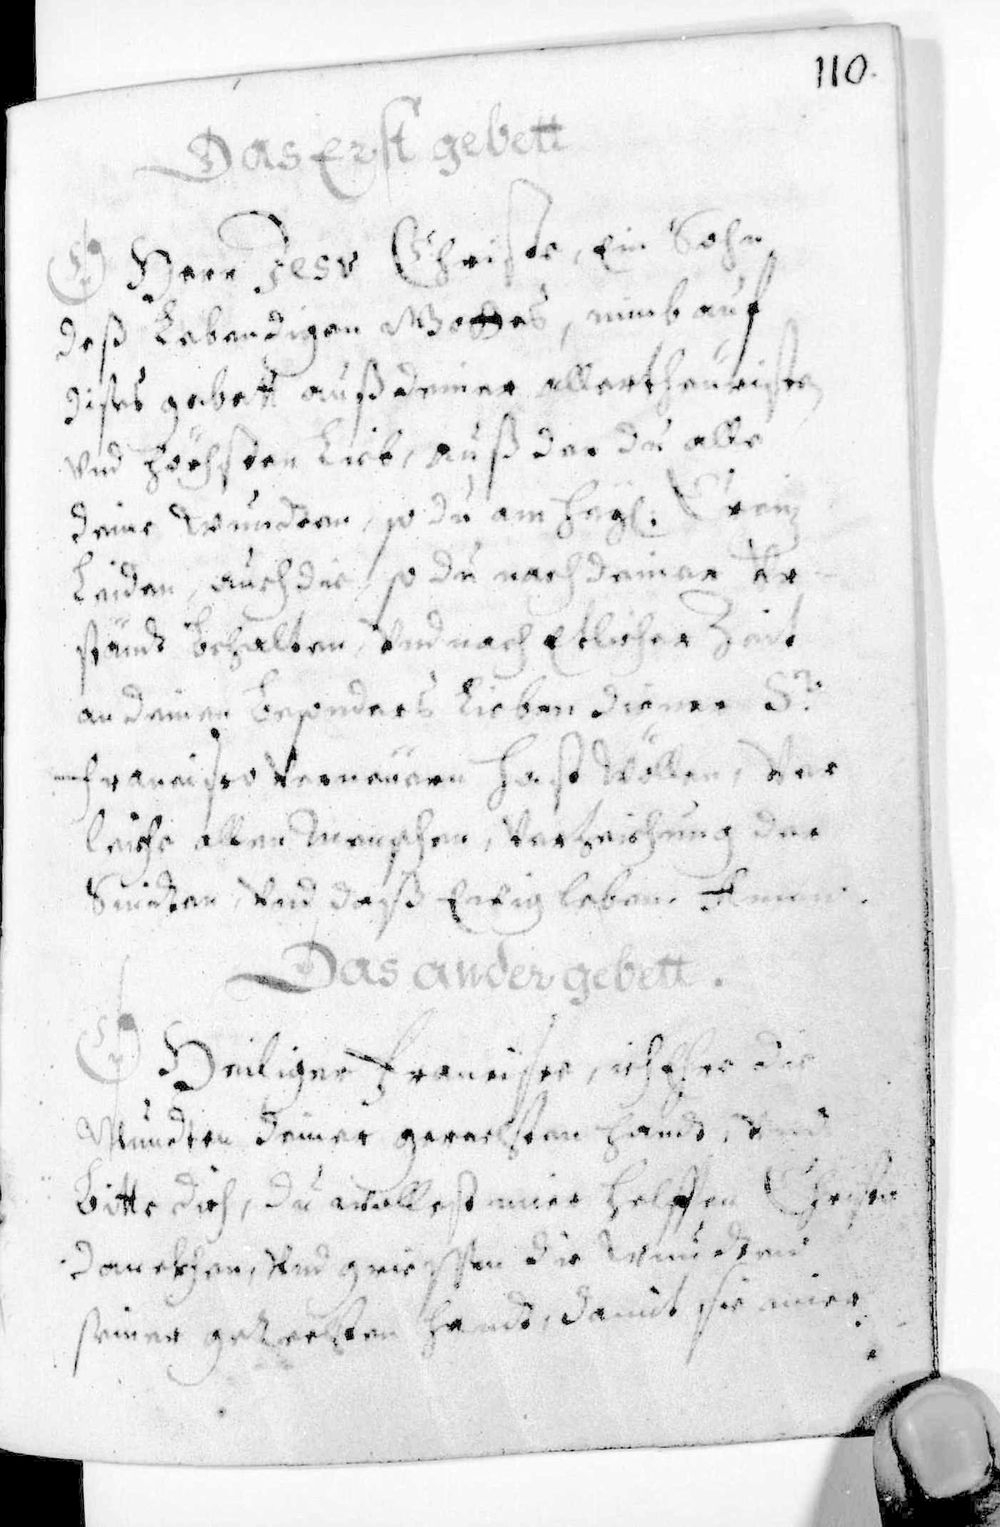 110.
Das Erst gebett
O Herr Jesu Christe, Ein Sohn
deß Lebendigen Gottes, nimb auf
dises gebett auß deiner allertheuristen
vnd höchsten Lieb, auß der du alle
deine Wundten, so du am heyl: Creiz
Leiden, auch die, so du nach deiner Vr-
ständt behalten, vnd nach etlicher Zeit
an deinen besonders lieben diener St:
Francisco verneüern hast wöllen, Ver
leiche allen Menschen, Verzeichung der
Sündten, vnd daß Ewig leben. Amen.
Das ander gebett.
O Heiliger Francisce, ich Ehre die
Wundten deiner gerechten handt, vnd
bitte dich, du wollest mier helffen Christo
danckhen, vnd griessen die Wundten
seiner gerechten handt, damit sie mier